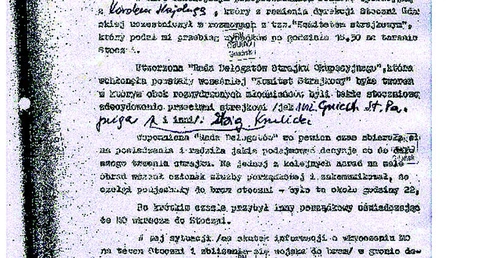 z Karolem Hajdugą, który z ramienia dyrekcji Stoczni Gdań
skiej uczestniczył w rozmowach z tzw. "Komitetem strajkowym",
który podał mi przebieg na godzinie 15,30 na terenie
Stoczni.
Utworzona "Rada Delegatów Strajku Okupacyjnego", która
wchłonęła powstały wcześniej "Komitet Strajkowy" była tworem
w którym obok rozwydrzonych młokosów, byli także stoczniowcy
zdecydowanie przeciwni strajkowi /jak inż. Gniech St. Pa
puga i inni/.
Wspomniana "Rada Delegatów" co pewien czas zbierała się
na posiedzenia i radziła jakie podejmować decyzje co do dal
szego trwania strajku. Na jednej z kolejnych narad na salę
obrad wszedł członek służby porządkowej i zakomunikował, że
czołgi podjechały do bram stoczni - było to około godziny 22,
Po krótkim czasie przybył inny porządkowy oświadczając
że MO wkracza do Stoczni.
W tej sytuacji /na skutek informacji o wkroczeniu MO
na teren Stoczni i zbliżeniu się wojska do bram/ w gronie de-